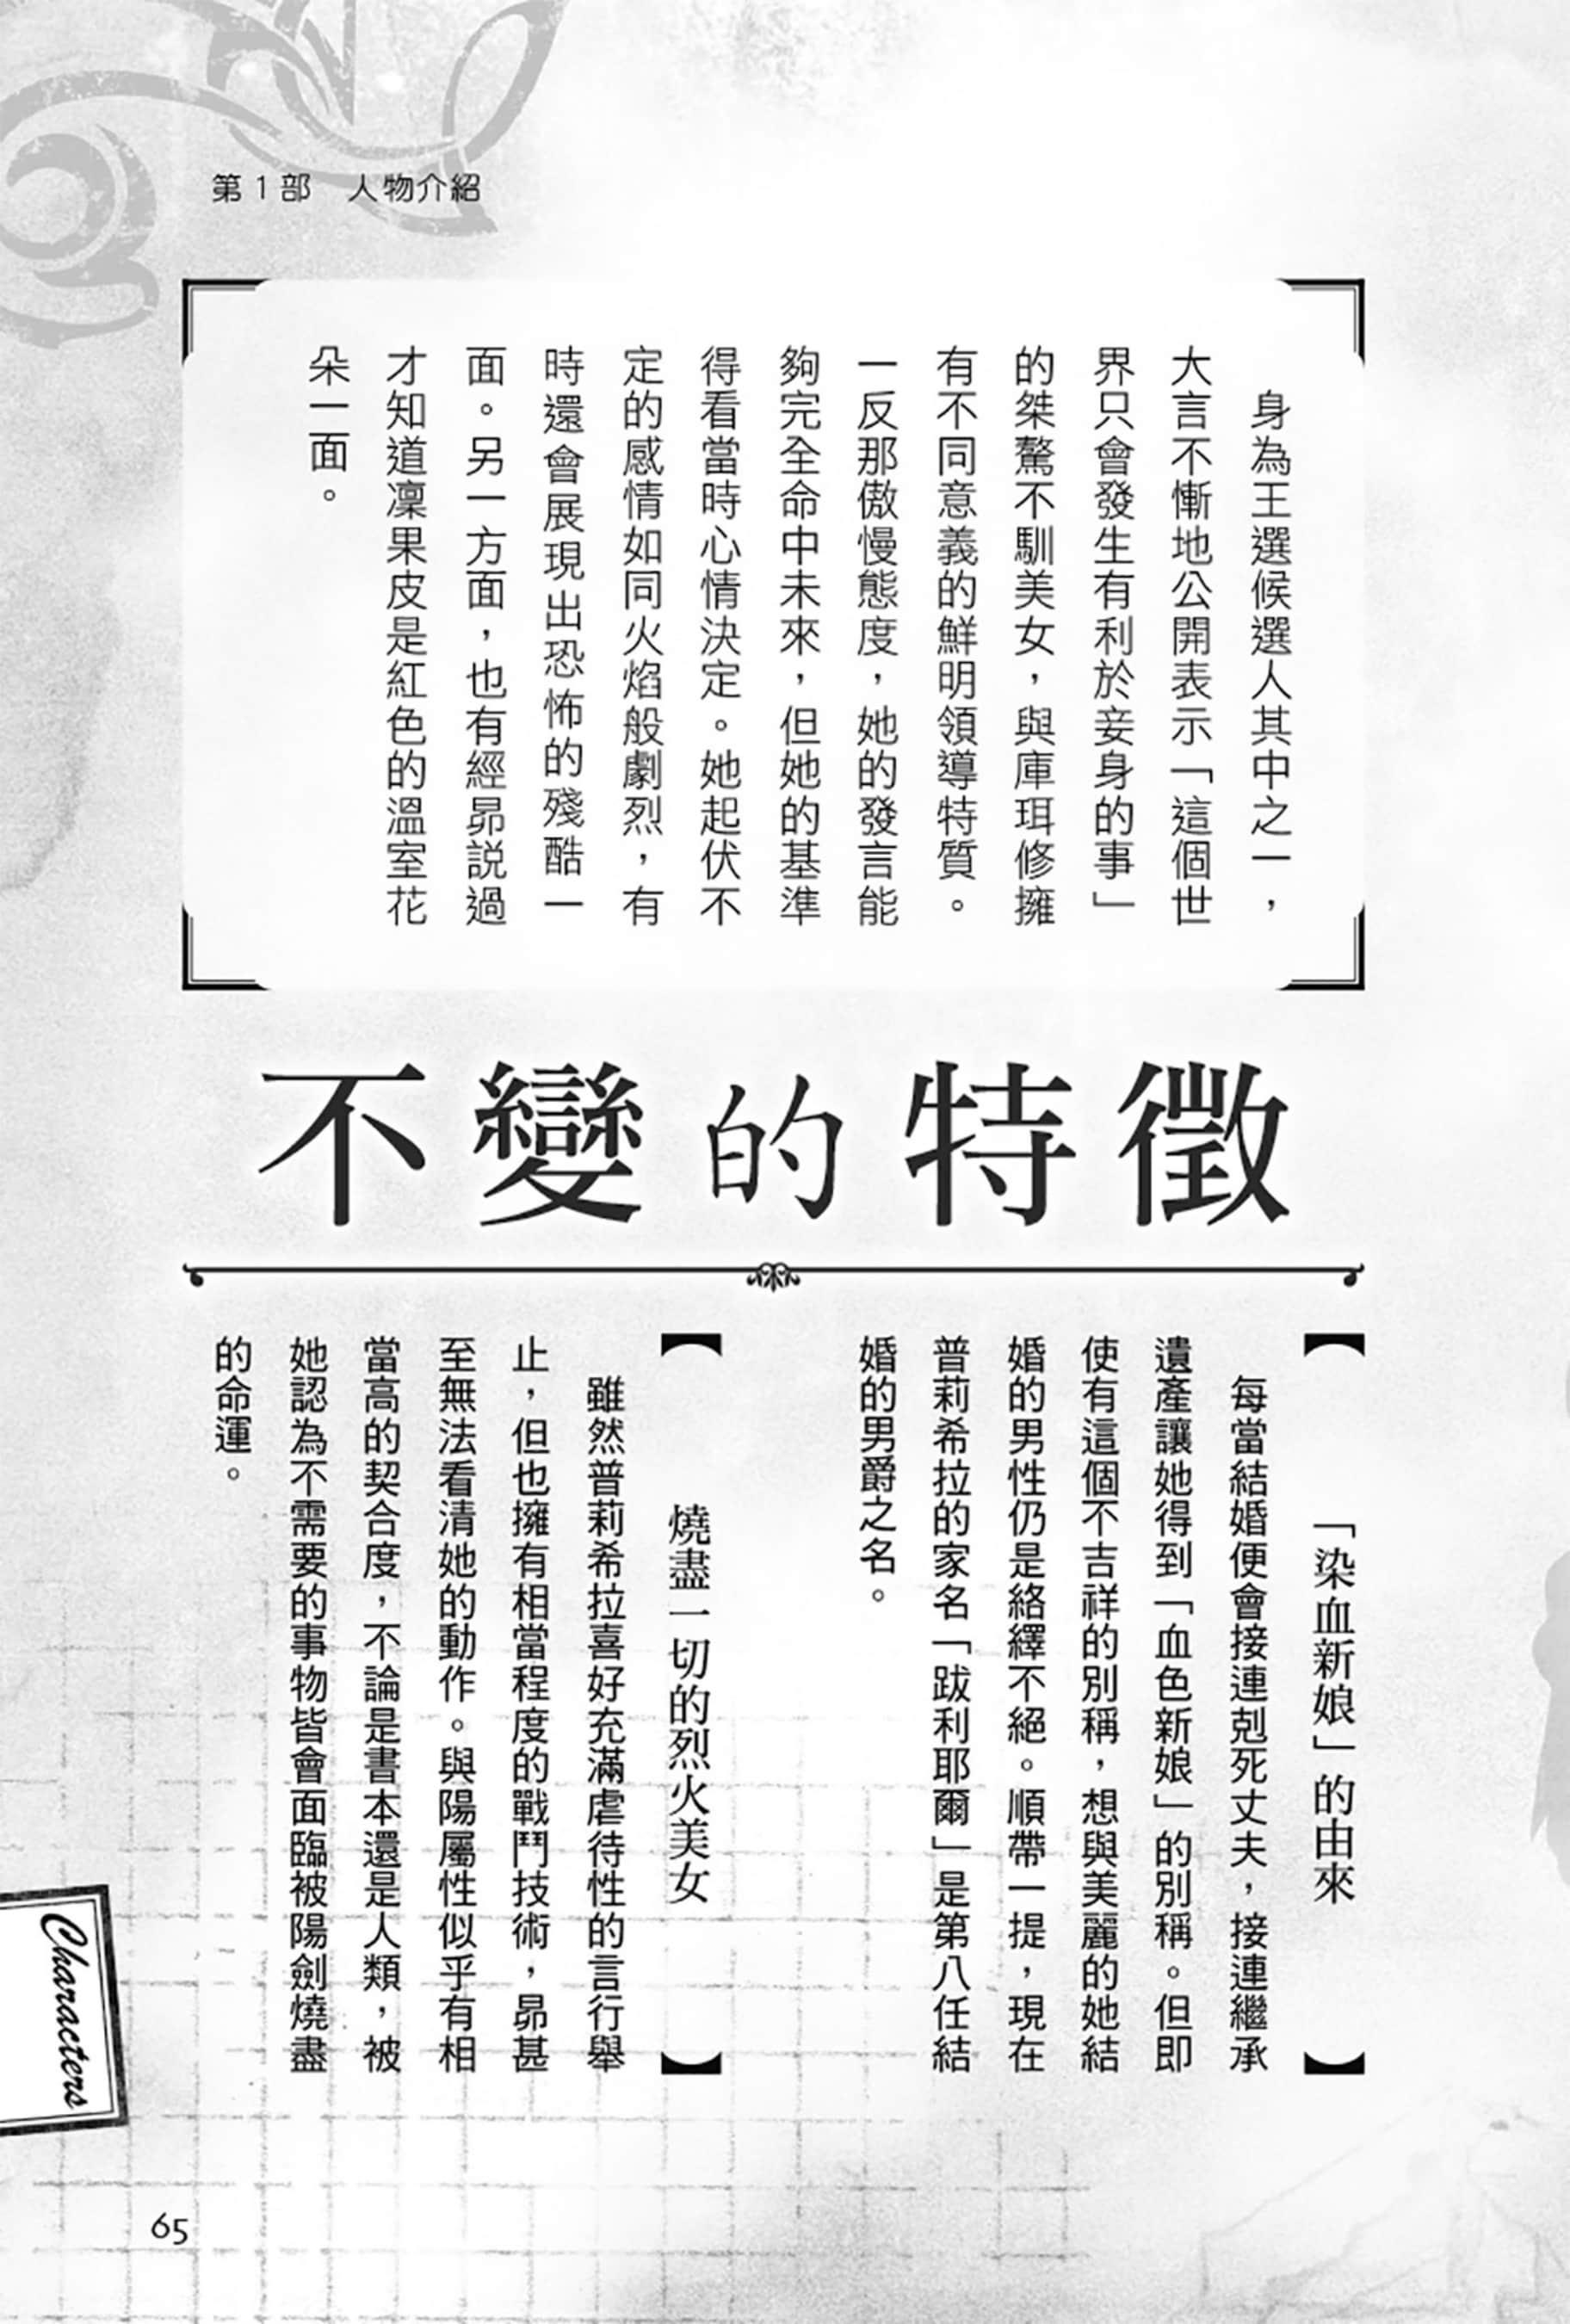 第1部　人物介紹
身為王選候選人其中之一，
大言不慚地公開表示「這個世
界只會發生有利於妾身的事」
的桀驁不馴美女，與庫珥修擁
有不同意義的鮮明領導特質。
一反那傲慢態度，她的發言能
夠完全命中未來，但她的基準
得看當時心情決定。她起伏不
定的感情如同火焰般劇烈，有
時還會展現出恐怖的殘酷一
面。另一方面，也有經昴説過
才知道凜果皮是紅色的溫室花
朵一面。
不變的特徵
「染血新娘」的由來
每當結婚便會接連剋死丈夫，接連繼承
遺產讓她得到「血色新娘」的別稱。但即
使有這個不吉祥的別稱，想與美麗的她結
婚的男性仍是絡繹不絕。順帶一提，現在
普莉希拉的家名「跋利耶爾」是第八任結
婚的男爵之名。
燒盡一切的烈火美女
雖然普莉希拉喜好充滿虐待性的言行舉
止，但也擁有相當程度的戰鬥技術，昴甚
至無法看清她的動作。與陽屬性似乎有相
當高的契合度，不論是書本還是人類，被
她認為不需要的事物皆會面臨被陽劍燒盡
的命運。
Characters
65